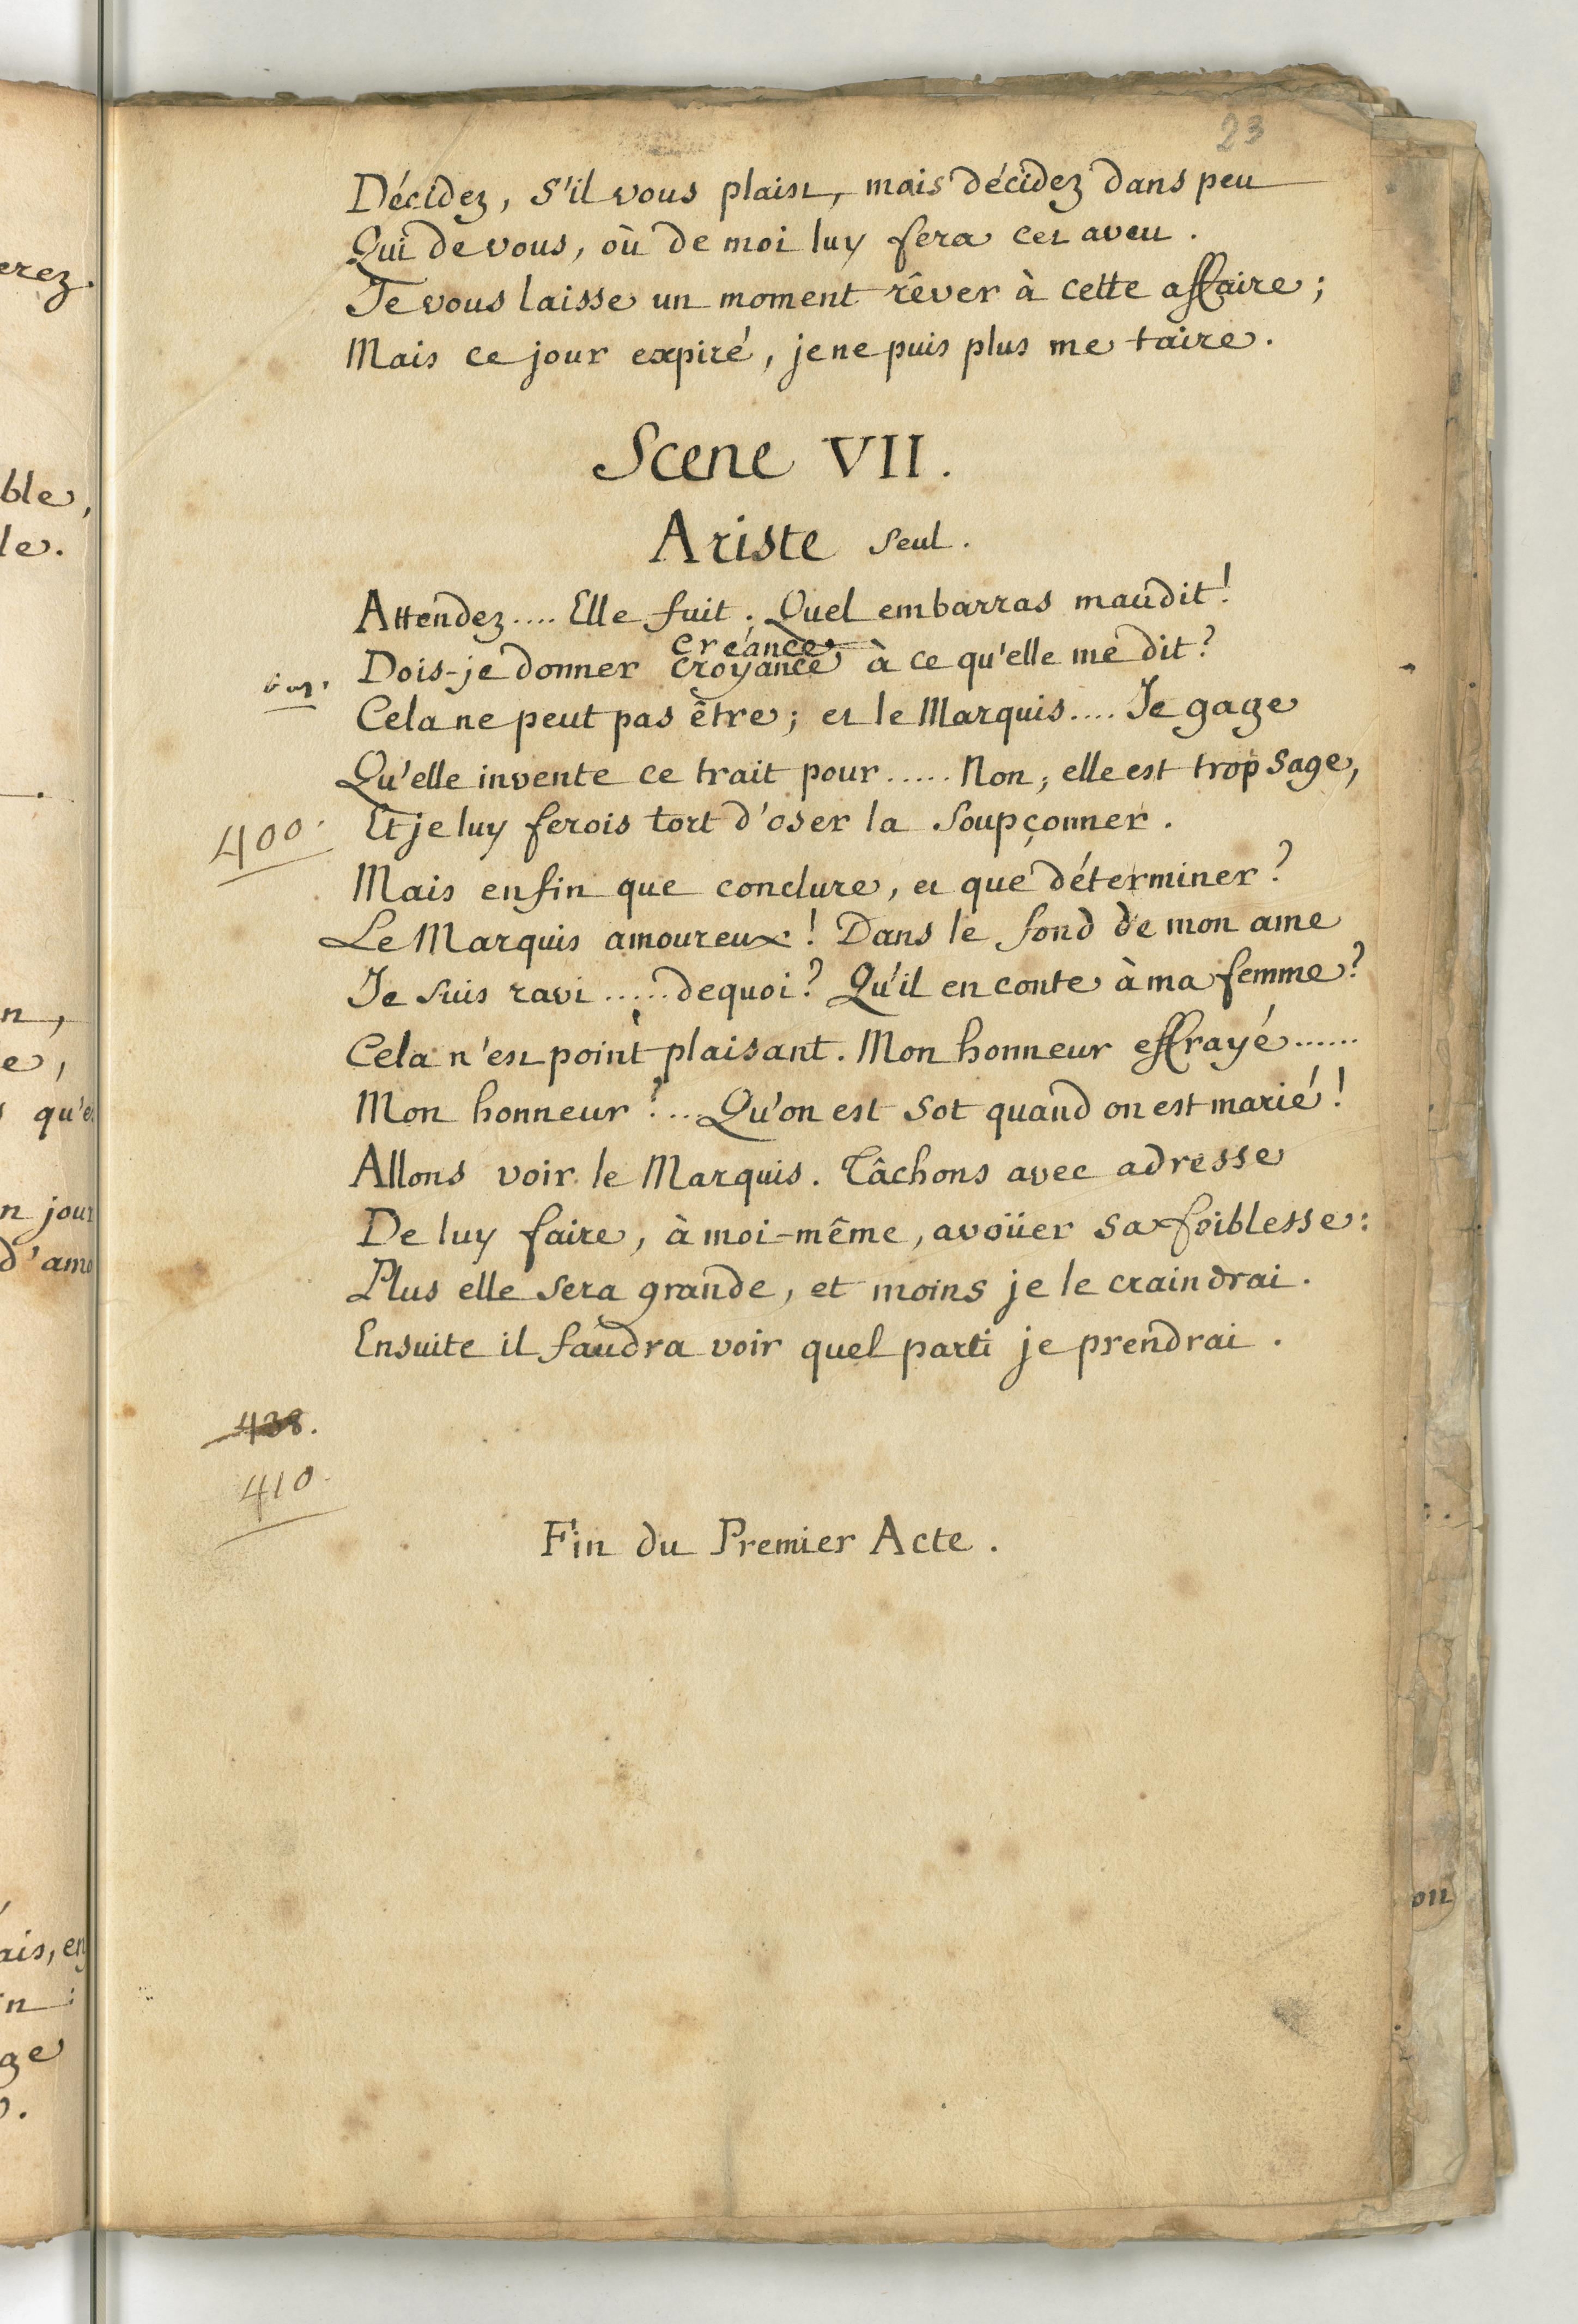 23
Décidez, s'il vous plaist, mais décidez dans peu
Qui de vous, où de moi luy fera cet aveu.
Je vous laisse un moment rêver à cette affaire;
Mais ce jour expiré, je ne puis plus me taire.
Scene VII.
Ariste seul.
Attendez.... Elle fuit. Quel embarras maudit!
créance
Dois-je donner croyance à ce qu'elle me dit?
Cela ne peut pas être; et le Marquis.... Je gage
Qu'elle invente ce trait pour..... Non, elle est trop sage,
400. Et je luy ferois tort d'oser la soupçonner.
Mais enfin que conclure, et que déterminer?
Le Marquis amoureux! Dans le fond de mon ame
Je suis ravi...... dequoi? Qu'il en conte à ma femme?
Cela n'est point plaisant. Mon honneur effrayé......
Mon honneur?... Qu'on est sot quand on est marié!
Allons voir le Marquis. Tâchons avec adresse
De luy faire, à moi-même, avoüer sa foiblesse:
Plus elle sera grande, et moins je le craindrai.
Ensuite il faudra voir quel parti je prendrai.
438.
410.
Fin du Premier Acte.
erez.
ble,
le.
n,
e,
qu'e
n jour
d'amo
ais, en
n:
ge
on